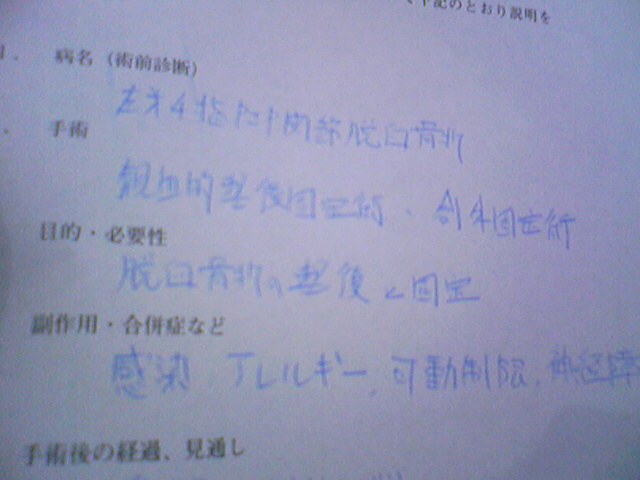 下記のとおり説明を
1. 病名（術前診断）
左第4指PIP関節脱臼骨折
手術
観血的整復固定術・創外固定術
目的・必要性
脱臼骨折の整復と固定
副作用・合併症など
感染、アレルギー、可動制限、神経障
手術後の経過、見通し